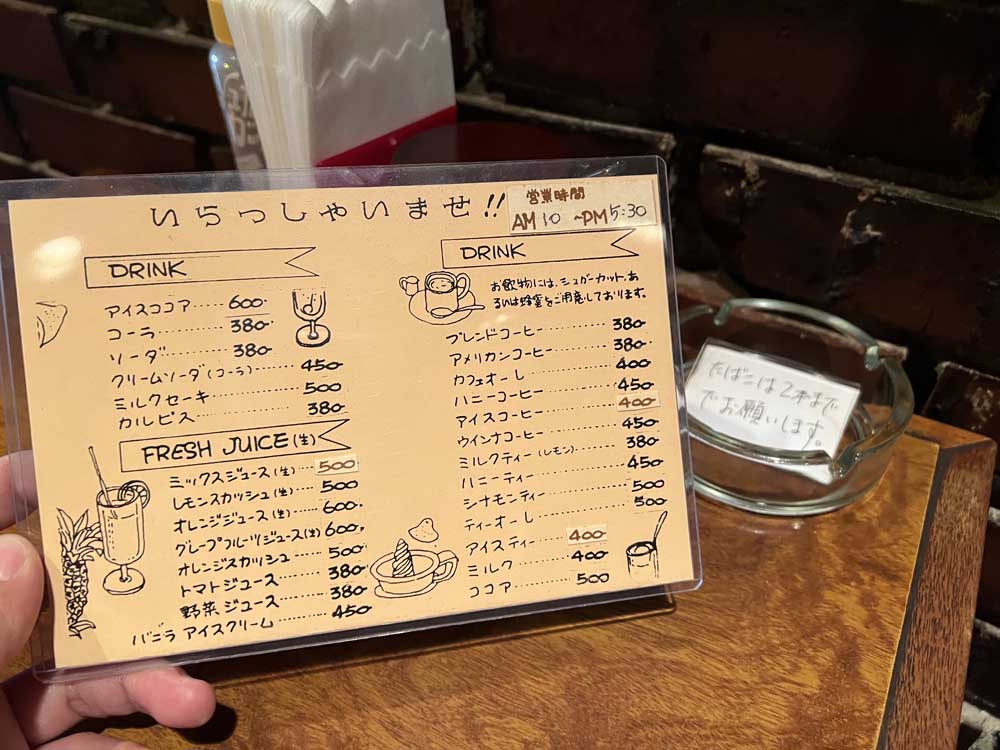 いらっしゃいませ!!
営業時間
AM 10 ~PM 5:30
DRINK
アイスココア 600
コーラ 380
ソーダ 380
クリームソーダ(コーラ) 450
ミルクセーキ 500
カルピス 380
FRESH JUICE(生)
ミックスジュース(生) 500
レモンスカッシュ(生) 500
オレンジジュース(生) 600
グレープフルーツジュース(生) 600
オレンジスカッシュ 500
トマトジュース 380
野菜ジュース 380
バニラアイスクリーム 450
DRINK
お飲物には、シュガーカット、あ
るいは蜂蜜をご用意しております。
ブレンドコーヒー 380
アメリカンコーヒー 380
カフェオーレ 400
ハニーコーヒー 450
アイスコーヒー 400
ウインナコーヒー 450
ミルクティー(レモン) 380
ハニーティー 450
シナモンティー 500
ティーオーレ 500
アイスティー 400
ミルク 400
ココア 500
たばこは2本まで
でお願いします。